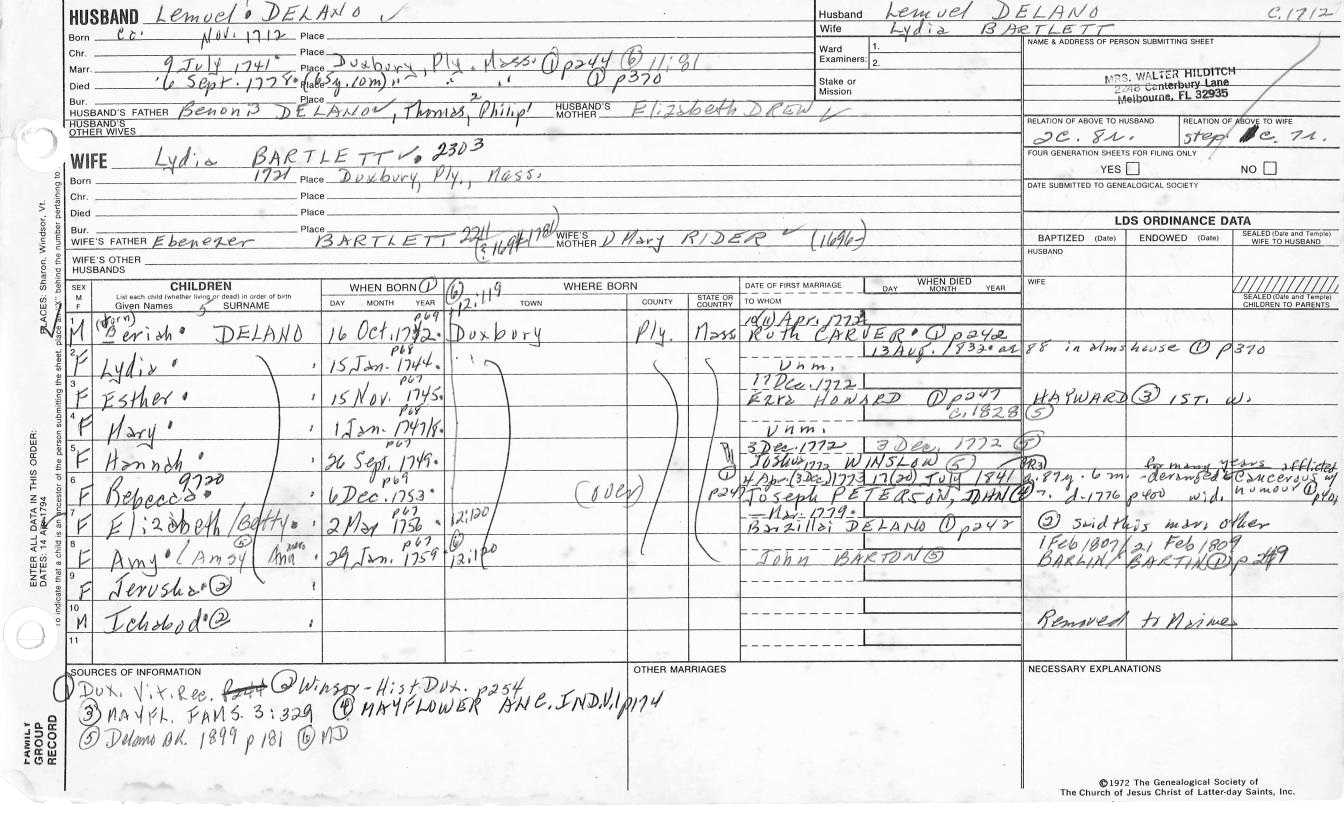 HUSBAND Lemuel DELANO
Born Co. Nov. 1712 Place
Chr. Place
Marr. 9 July 1741 Place Duxbury, Ply. Mass. ① p244 ⑥ 11:81
Died 6 Sept. 1778 (65y. 10m) Place " " " ① p370
Bur. Place
HUSBAND'S FATHER Benoni3 DELANO, Thomas,2 Philip1 HUSBAND'S MOTHER Elizabeth DREW
HUSBAND'S OTHER WIVES
Husband Lemuel DELANO C.1712
Wife Lydia BARTLETT
Ward Examiners: 1.
2.
Stake or Mission
NAME & ADDRESS OF PERSON SUBMITTING SHEET
MRS. WALTER HILDITCH
Canterbury Lane
Melbourne, FL 32935
RELATION OF ABOVE TO HUSBAND RELATION OF ABOVE TO WIFE
2C. 8r. step C. 7r.
FOUR GENERATION SHEETS FOR FILING ONLY
YES NO
DATE SUBMITTED TO GENEALOGICAL SOCIETY
WIFE Lydia BARTLETT 2303
Born 1721 Place Duxbury, Ply., Mass.
Chr. Place
Died Place
Bur. Place
WIFE'S FATHER Ebenezer BARTLETT WIFE'S MOTHER Mary RIDER (1696-)
WIFE'S OTHER HUSBANDS
LDS ORDINANCE DATA
BAPTIZED (Date) ENDOWED (Date) SEALED (Date and Temple) WIFE TO HUSBAND
HUSBAND
WIFE
SEALED (Date and Temple) CHILDREN TO PARENTS
SEX M F CHILDREN
List each child (whether living or dead) in order of birth
Given Names SURNAME
WHEN BORN ① DAY MONTH YEAR
⑥ 12:119 WHERE BORN TOWN COUNTY STATE OR COUNTRY
DATE OF FIRST MARRIAGE TO WHOM
WHEN DIED DAY MONTH YEAR
1 M Beriah DELANO 16 Oct. p69 Duxbury Ply. Mass Apr. 1772 Ruth CARVER ① p242
2 F Lydia 15 Jan. 1744 p68 Unm. 13 Aug. 1832 at 88 in almshouse ① p370
3 F Esther 15 Nov. 1745 p67 17 Dec. 1772 Ezra HOWARD ① p247 HAYWARD ③ 1ST. W.
4 F Mary 1 Jan. 1747/8 p68 Unm. c.1828 ⑤
5 F Hannah 26 Sept. 1749 p67 3 Dec. 1772 Joshua WINSLOW ⑤ 3 Dec. 1772 ⑤
6 F Rebecca 9720 6 Dec. 1753 p69 (over) Joseph PETERSON, JOHN 17(20) July 1841 a. 87y. 6m. -deranged & cancerous humour for many years afflicted w/
d. 1776 p400 wid.
7 F Elizabeth/Betty 2 Mar 1756 p67 12:120 Mar. 1779 Barzillai DELANO ① p242 ② said this man, other
8 F Amy (Amsy ⑤ 29 Jan. 1759 p67 ⑥ 12:120 John BARTON ⑤ 1 Feb 1807/21 Feb 1809
BARLIN/BARTIN ①
9 F Jerusha ②
10 M Ichabod ② Removed to Maine
11
SOURCES OF INFORMATION
① Dux. Vit. Rec. ② Winsor-Hist Dux. p254
③ MAYFL. FAMS. 3:329 ④ MAYFLOWER ANC. IND. V.1 p174
⑤ Delano 1899 p181 ⑥ MD
OTHER MARRIAGES
NECESSARY EXPLANATIONS
©1972 The Genealogical Society of
The Church of Jesus Christ of Latter-day Saints, Inc.
PLACES: Sharon, Windsor, Vt.
ENTER ALL DATA IN THIS ORDER:
DATES: 14 Apr 1794
To indicate that a child is an ancestor of the person submitting the sheet, place an behind the number pertaining to
FAMILY GROUP RECORD